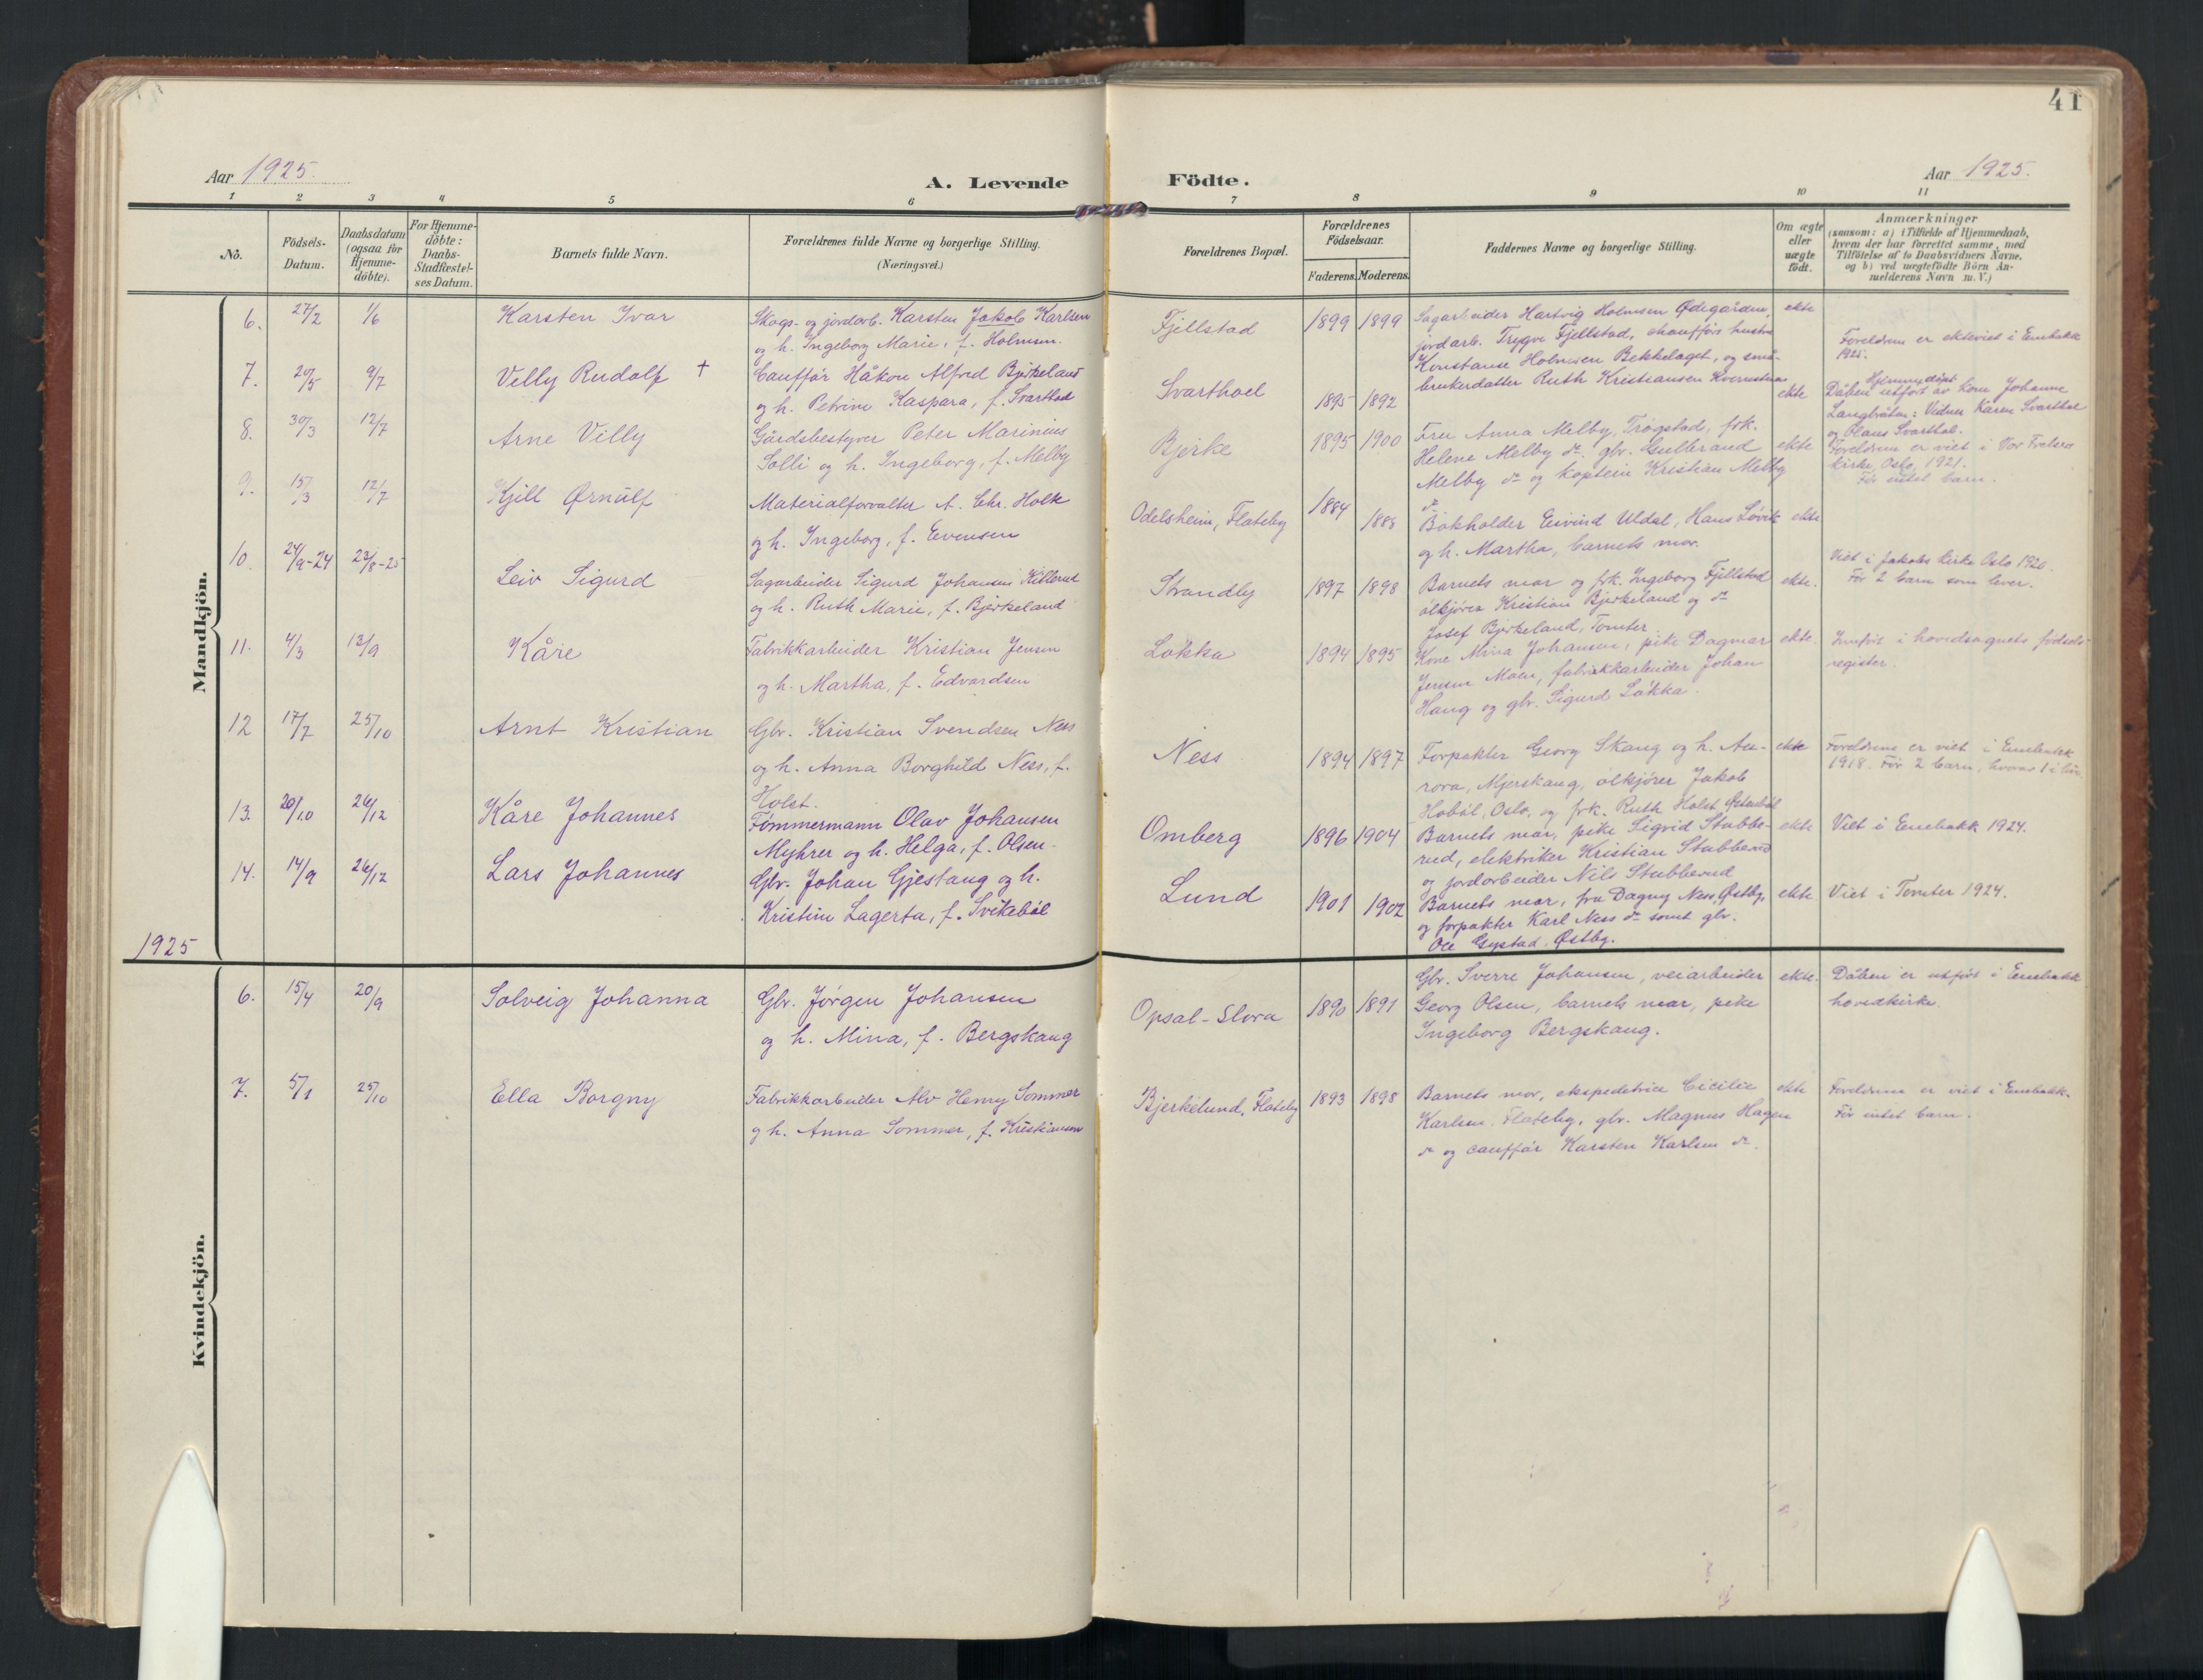 41
Aar 1925.
A. Levende Födte.
Aar 1925.
1 2 3 4 5 6 7 8 9 10 11
No.
Födsels-
Datum.
Daabsdatum
(ogsaa for
Hjemme-
döbte).
For Hjemme-
döbte:
Daabs-
Stadfæstel-
ses Datum.
Barnets fulde Navn.
Forældrenes fulde Navne og borgerlige Stilling.
(Næringsvei.)
Forældrenes Bopæl.
Forældrenes
Födselsaar.
Faderens. Moderens.
Faddernes Navne og borgerlige Stilling.
Om ægte
eller
uægte
födt.
Anmærkninger
(saasom: a) i Tilfælde af Hjemmedaab,
hvem der har forrettet samme, med
Tilföielse af to Daabsvidners Navne.
og b) ved uægtefödte Börn An-
melderens Navn m. V.)
Mandkjön.
6. 27/2 1/6 Karsten Ivar
Skogs- og jordarb. Karsten Jakob Karlsen
og h. Ingeborg Marie, f. Holmsen.
Fjellstad 1899 1899
Sagarbeider Hartvig Holmsen Ødegården,
jordarb. Trygve Fjellstad, chaufførs hustru
Konstanse Holmsen Bekkelaget, og små-
brukerdatter Ruth Kristiansen
ekte
Foreldrene er ekteviet i Enebakk
1925.
7. 20/5 9/7 Villy Rudolf +
Cauffør Håkon Alfred Bjørkeland
og h. Petrine Kaspara, f. Svarthol
Svarthoel 1895 1892
ekte
Hjemmedøpt
Dåben utført av kone Johanne
Langbråten: Vidner Karen Svarthol
og Olaus Svarthol.
8. 30/3 12/7 Arne Villy
Gårdsbestyrer Peter Marinius
Solli og h. Ingeborg, f. Melby
Bjerke 1895 1900
Fru Anna Melby, Trøgstad, frk.
Helene Melby do. gbr. Gulbrand
Melby do og kaptein Kristian Melby
do
ekte
Foreldrene er viet i Vor Frelsers
kirke, Oslo, 1921.
Før intet barn.
9. 15/3 12/7 Kjell Ørnulf
Materialforvalter A. Chr. Holk
og h. Ingeborg, f. Evensen
Odelsheim, Flateby 1884 1888
Bokholder Eivind Uldal, Hans Løvik
og h. Martha, barnets mor.
ekte
Viet i Jakobs kirke Oslo 1920.
Før 2 barn som lever.
10. 24/9-24 23/8-25 Leiv Sigurd
Sagarbeider Sigurd Johansen Killerud
og h. Ruth Marie, f. Bjørkeland
Strandby 1897 1898
Barnets mor og frk. Ingeborg Fjellstad
ølkjører Kristian Bjørkeland og do
Josef Bjørkeland, Tomter
ekte.
11. 4/3 13/9 Kåre
Fabrikkarbeider Kristian Jensen
og h. Martha, f. Edvardsen
Løkka 1894 1895
Kone Mina Johansen, pike Dagmar
Jensen Moen, fabrikkarbeider Johan
Haug og gbr. Sigurd Løkka.
ekte.
Innført i hovedsognets fødsels-
register.
12 17/7 25/10 Arnt Kristian
Gbr. Kristian Svendsen Ness
og h. Anna Borghild Ness, f.
Holst.
Ness 1894 1897
Forpakter Georg Skaug og h. Au-
rora, Mjerskaug, ølkjører Jakob
Hobøl, Oslo, og frk. Ruth Holst Østenbøl
ekte
Foreldrene er viet i Enebakk
1918. Før 2 barn, hvorav 1 i live.
13. 20/10 26/12 Kåre Johannes
Tømmermann Olav Johansen
Myhrer og h. Helga, f. Olsen.
Omberg 1896 1904
Barnets mor, pike Sigrid Stubbe-
rud, elektriker Kristian Stubberud
og jordarbeider Nils Stubberud
ekte
Viet i Enebakk 1924.
14. 14/9 26/12 Lars Johannes
Gbr. Johan Gjestaug og h.
Kristine Lagerta, f. Svikebøl
Lund 1901 1902
Barnets mor, fru Dagny Ness, Østby,
og forpakter Karl Ness do samt gbr.
Ole Gystad. Østby.
ekte
Viet i Tomter 1924.
1925
Kvindekjön.
6. 15/4 20/9 Solveig Johanna
Gbr. Jørgen Johansen
og h. Mina, f. Bergskaug
Opsal-Slora 1890 1891
Gbr. Sverre Johansen, veiarbeider
Georg Olsen, barnets mor, pike
Ingeborg Bergskaug.
ekte.
Dåben er utført i Enebakk
hovedkirke.
7. 5/1 25/10 Ella Borgny
Fabrikkarbeider Alv Henry Sommer
og h. Anna Sommer, f. Kristiansen
Bjerkelund, Flateby 1893 1898
Barnets mor, ekspeditrice Cicilie
Karlsen, Flateby, gbr. Magnus Hagen
do og cauffør Karsten Karlsen do.
ekte
Foreldrene er viet i Enebakk.
Før intet barn.